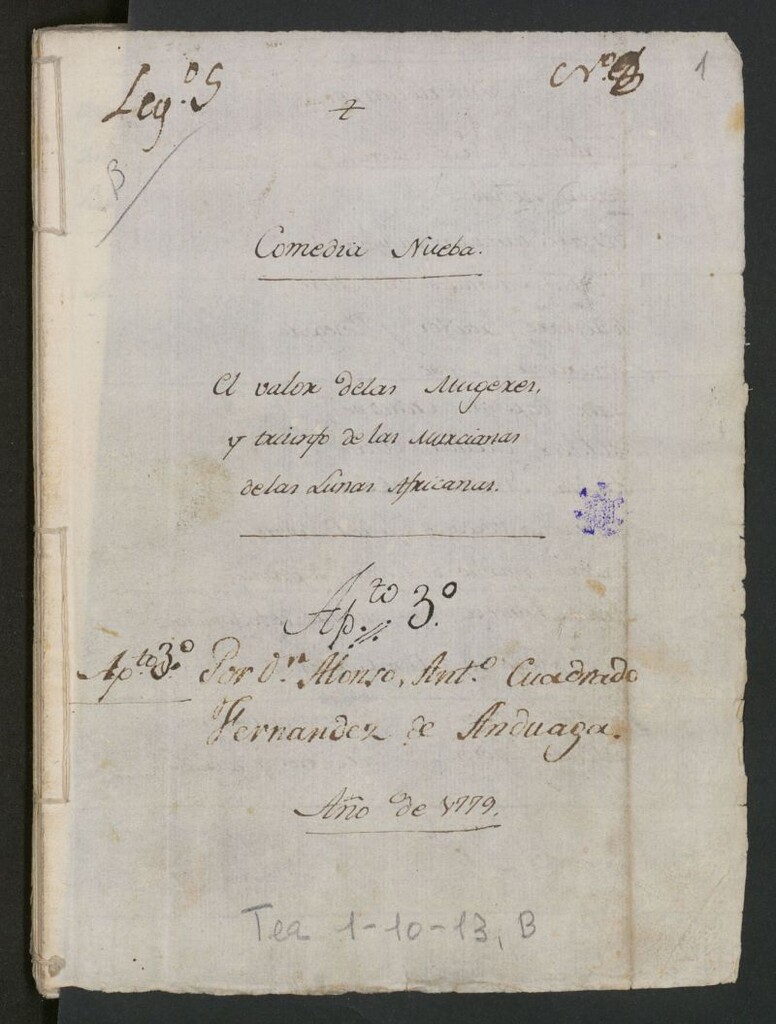 Leg.º 5
N.º
1
B
Comedia Nueba.
El valor delas Mugeres,
y triunfo de las Murcianas
delas Lunas Africanas.
Ap.to 3.º
Ap.to 3.º Por D.n Alonso, Ant.º Cuadrado
Fernandez de Anduaga.
Año de 1779.
Tea 1-10-13, B